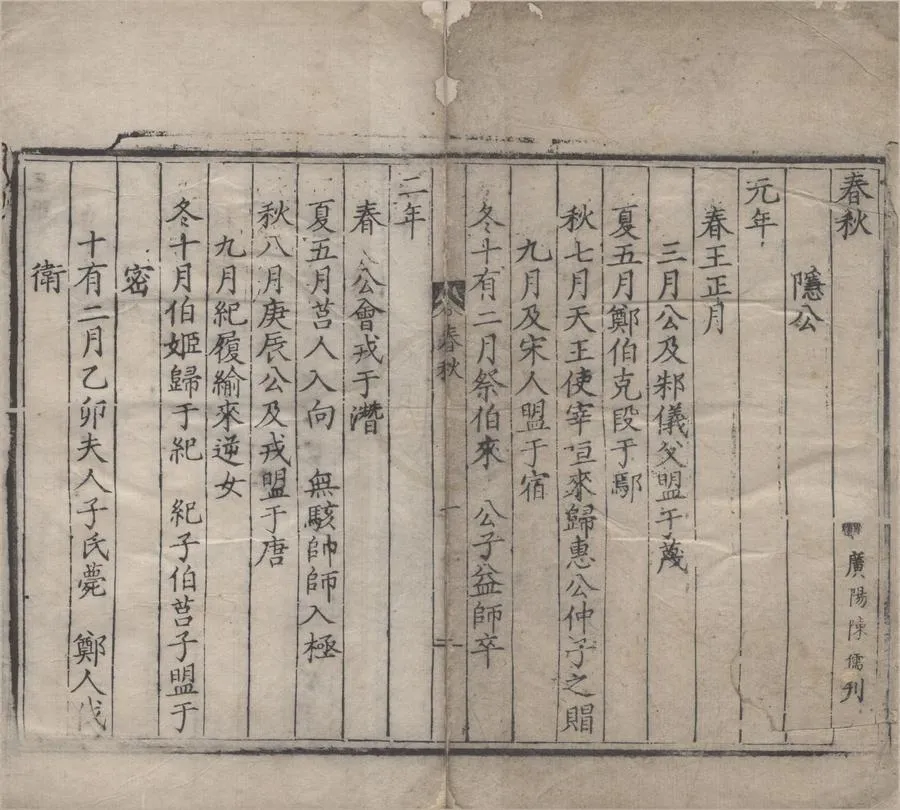 春秋
廣陽陳儒刊
隱公
元年
春王正月
三月公及邾儀父盟于蔑
夏五月鄭伯克段于鄢
秋七月天王使宰咺來歸惠公仲子之賵
九月及宋人盟于宿
冬十有二月祭伯來　公子益師卒
春秋
一
二年
春　公會戎于潛
夏五月莒人入向　無駭帥師入極
秋八月庚辰公及戎盟于唐
九月紀履緰來逆女
冬十月伯姬歸于紀　紀子伯莒子盟于
密
十有二月乙卯夫人子氏薨　鄭人伐
衛